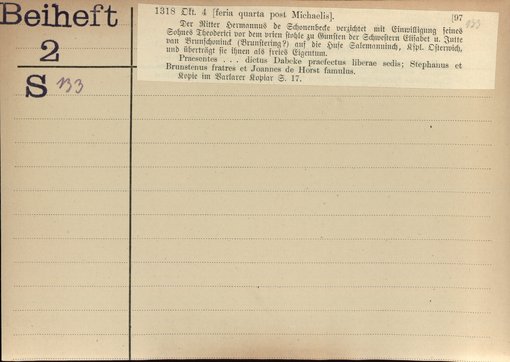 Beiheft
2
S 133
1318 Okt. 4 [feria quarta post Michaelis]. [97
133
Der Ritter Hermannus de Schonenbecke verzichtet mit Einwilligung seines
Sohnes Theoderici vor dem vrien stohle zu Gunsten der Schwestern Elisabet u. Jutte
van Brunschonink (Brunstering?) auf die Hufe Salemannind, Kspl. Ostervich,
und überträgt sie ihnen als freies Eigentum.
Praesentes . . . dictus Dabeke praefectus liberae sedis; Stephanus et
Brunstenus fratres et Joannes de Horst famulus.
Kopie im Varlarer Kopiar S. 17.